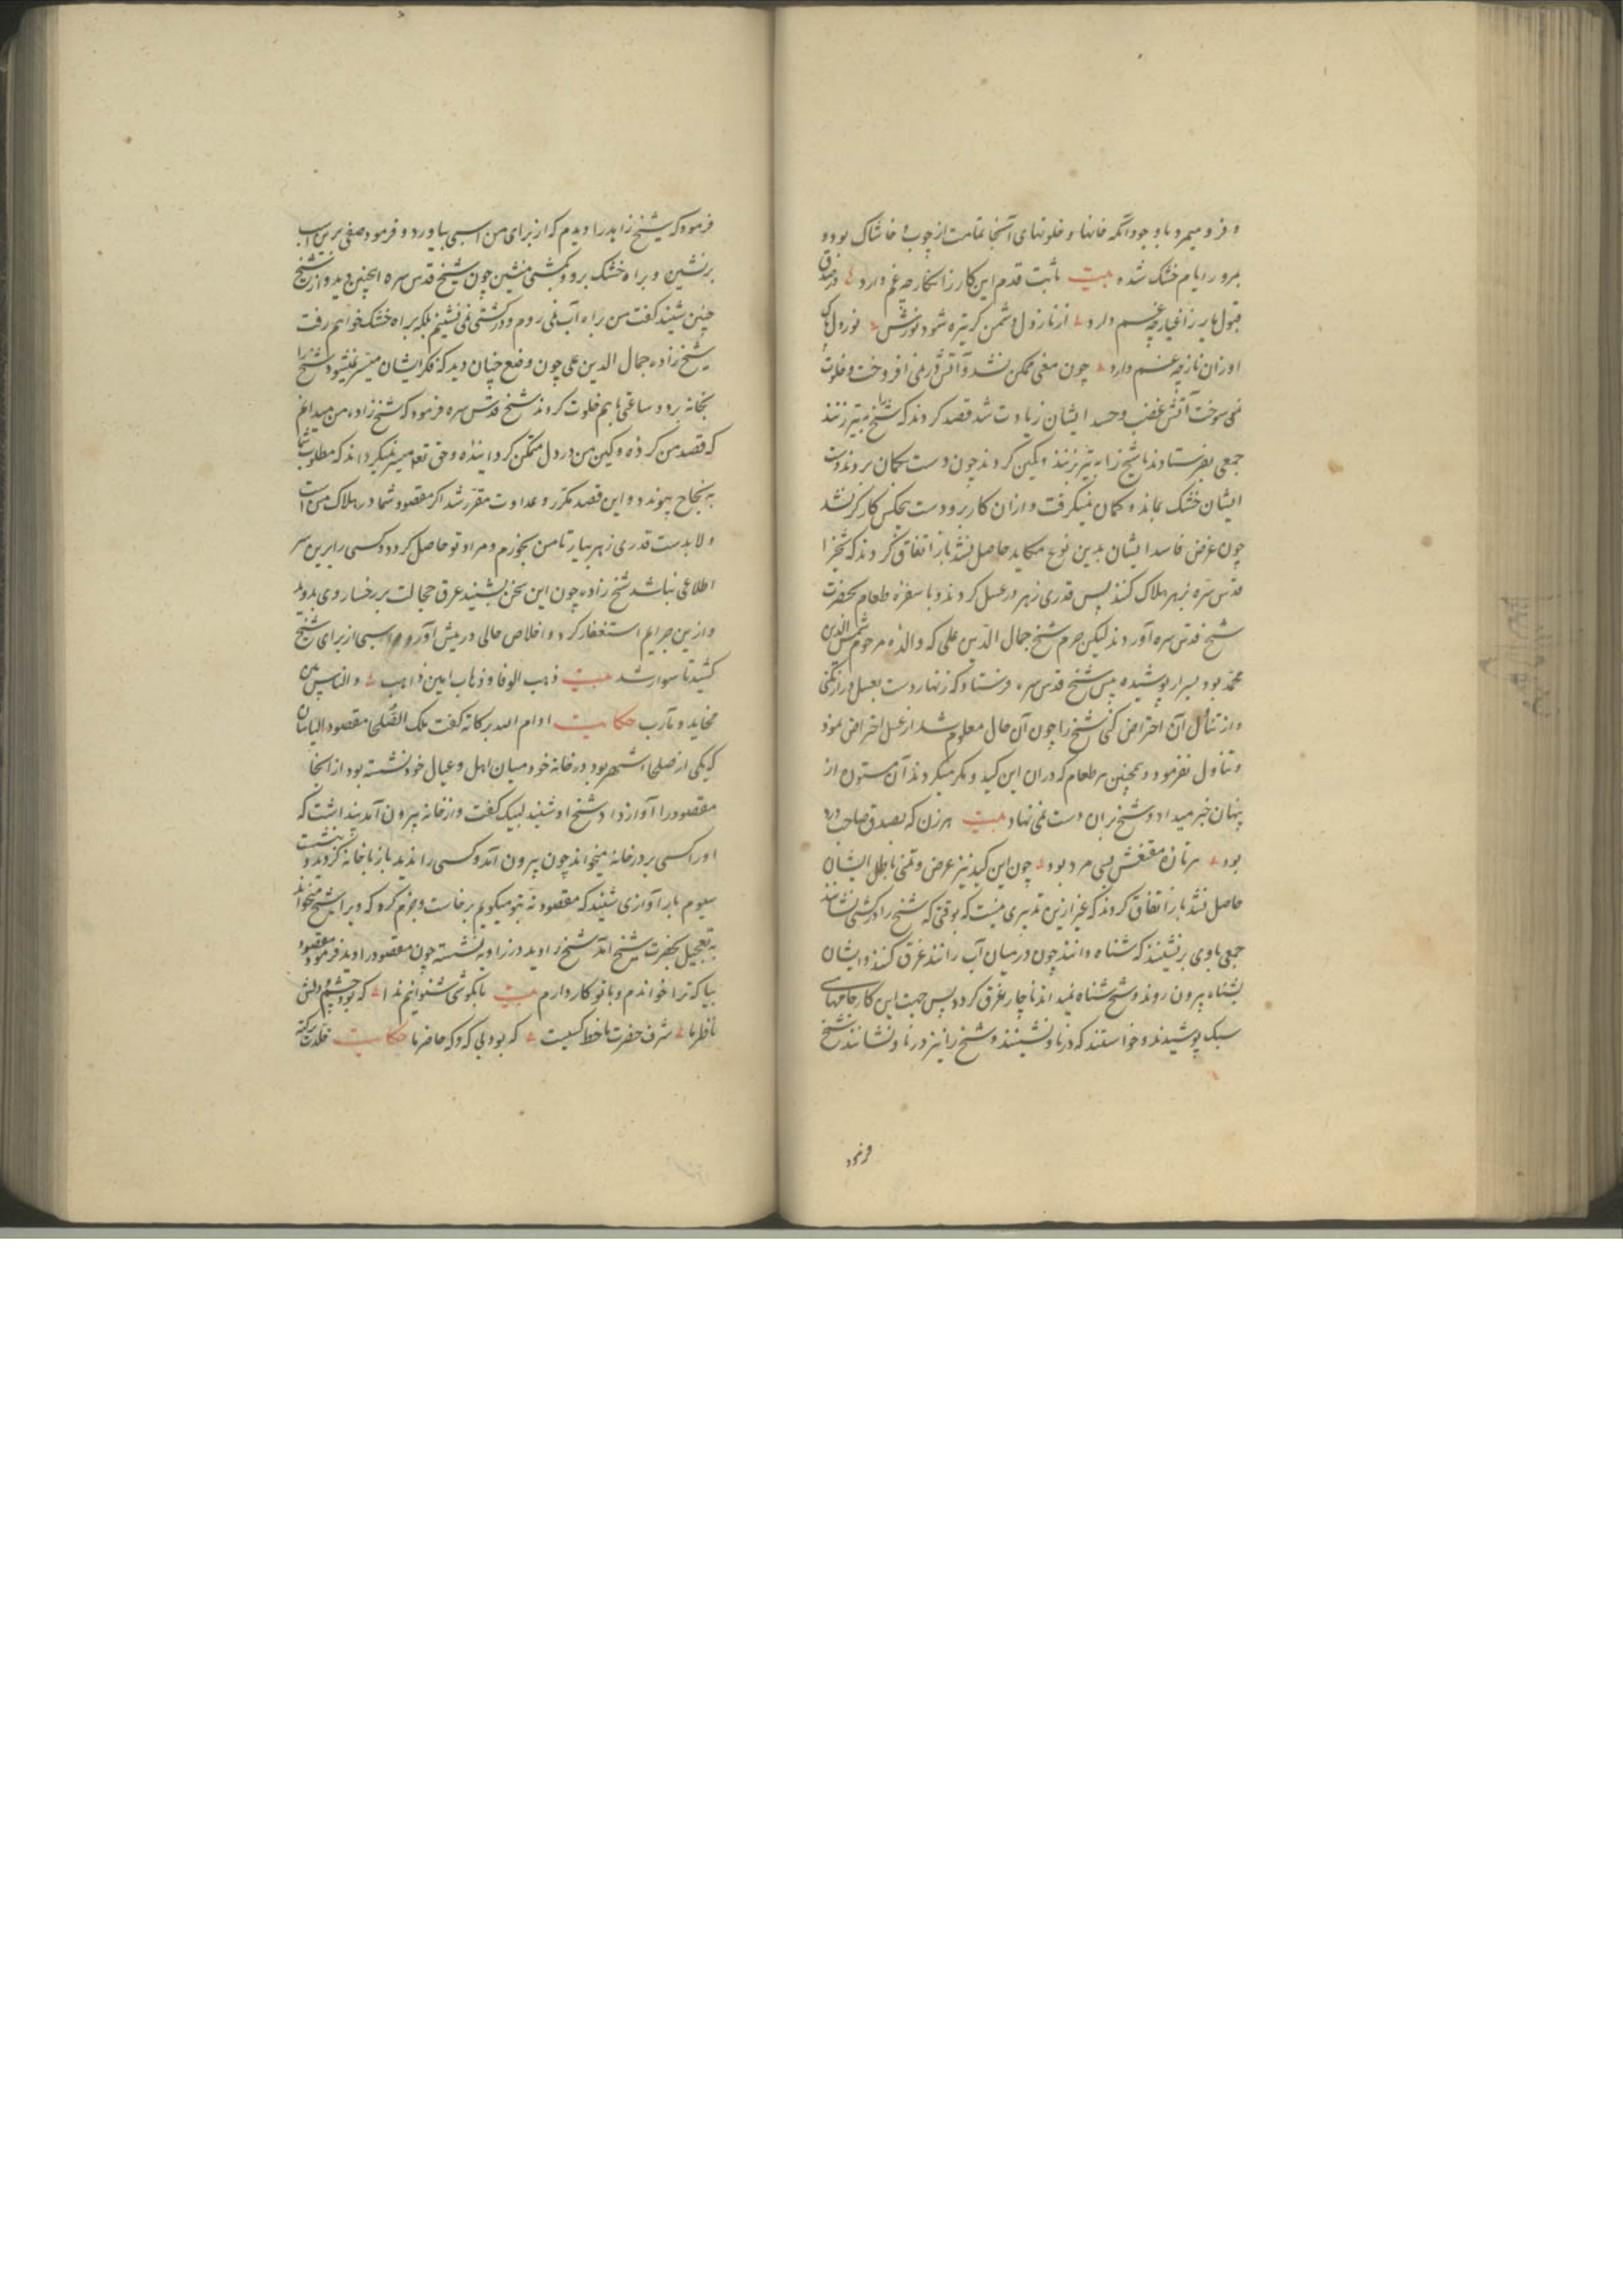 و فرو میمرد با وجود آنکه خانها و خلوتهای آنجا تمامت از چوب و خاشاک بود و
بمرور ایام خشک شده بیت ثابت قدم این کار ز انکار چه غم دارد در صدق
قبول یار ز اغیار چه غم دارد از نار دل دشمن کر تیره شود نورش نور دل
او زان نار چه غم دارد چون معنی ممکن نشد و آتش در نمی افروخت و خلوت
نمی سوخت آتش غضب و حسد ایشان زیادت شد قصد کردند که شیخ را بتیر زنند
جمعی بفرستادند تا شیخ را بتیر بزنند و کمین کردند چون دست بکمان بردند دست
ایشان خشک بماند و کمان نمیکرفت و ازان کار برو دست هیچکس کارکر نشد
چون غرض فاسد ایشان بدین نوع مکاید حاصل نشد باز اتفاق کردند که شیخ را
قدس سره بزهر هلاک کنند پس قدری زهر در عسل کردند و با سفره طعام بحضرت
شیخ قدس سره آوردند لیکن حرم شیخ جمال الدین علی که والده مرحوم شمس الدین
محمد بود بسر ار پوشیده پیش شیخ قدس سره فرستاد که زنهار دست بعسل دراز نکنی
و از تناول آن احتراض کنی شیخ را چون آن حال معلوم شد از عسل احتراض نمود
و تناول نفرمود و همچنین هر طعام که دران این کید و مکر میکردند آن مستوره از
پنهان خبر میداد و شیخ بران دست نمی نهاد بیت هر زن که بصدق صاحب درد
بود هر تار مقنعش بسی مرد بود چون این کید نیز عرض و تمنی باطل ایشان
حاصل نشد باز اتفاق کردند که غیر ازین تدبیری نیست که بوقتی که شیخ را در کشتی نشانند
جمعی با وی برنشینند که شناه دانند چون در میان آب رانند غرق کنند و ایشان
بشناه بیرون روند و شیخ شناه نمیداند ناچار غرق کردد پس جهت این کار جامهای
سبک پوشیدند و خواستند که در ناو نشینند و شیخ را نیز در ناو نشانند شیخ
فرمود
فرمود که شیخ زاهد را دیدم که از برای من اسبی بیاورد و فرمود صفی برین اسب
برنشین و براه خشک برو و بکشتی منشین چون شیخ قدس سره اینچنین دید و از شیخ
چنین شنید کفت من براه آب نمی روم و در کشتی نمی نشینم بلکه براه خشک خواهم رفت
شیخ زاده جمال الدین علی چون وضع چنان دید که فکر ایشان میسر نمیشود شیخ را
بخانه برد و ساعتی باهم خلوت کردند شیخ قدس سره فرمود که شیخ زاده من میدانم
که قصد من کرده و کین من در دل متمکن کردانیده و حق تعالی میسر نمیکرداند که مطلوب شما
به نجاح پیوندد و این قصد مکرر و عداوت مقرر شد اکر مقصود شما در هلاک من است
و لابدست قدری زهر بیار تا من بخورم و مراد تو حاصل کردد و کسی را برین سر
اطلاعی نباشد شیخ زاده چون این سخن بشنید عرق خجالت بر رخسار وی بدوید
و ازین جرایم استغفار کرد و اخلاص حالی در پیش آورد و اسبی از برای شیخ
کشید تا سوار شد بیت ذهب الوفاء ذهاب امس ذاهب والناس بین
مخاید و مآرب حکایت ادام الله برکاته کفت ملک الصلحا مقصود
که یکی از صلحا اشهر بود در خانه خود میان اهل و عیال خود نشسته بود از آنجا
مقصود را آواز داد شیخ او شنید لبیک کفت و از خانه بیرون آمد پنداشت که
او را کسی بر در خانه میخواند چون بیرون آمد و کسی را ندید باز با خانه کردید و بنشست
سیوم بار آوازی شنید که مقصود نه بتو میکویم برخاست و جزم کرد که ویرا شیخ میخواند
به تعجیل بحضرت شیخ آمد شیخ را دید در زاویه نشسته چون مقصود را دید فرمود مقصود
بیا که ترا خواندم و با تو کار دارم بیت با کوش شنوانیم ندا که بود چشم دلش
ناظر ما شرف حضرت ما خط کسیست که بود بی که و که حاضر ما حکایت خلدت برکته